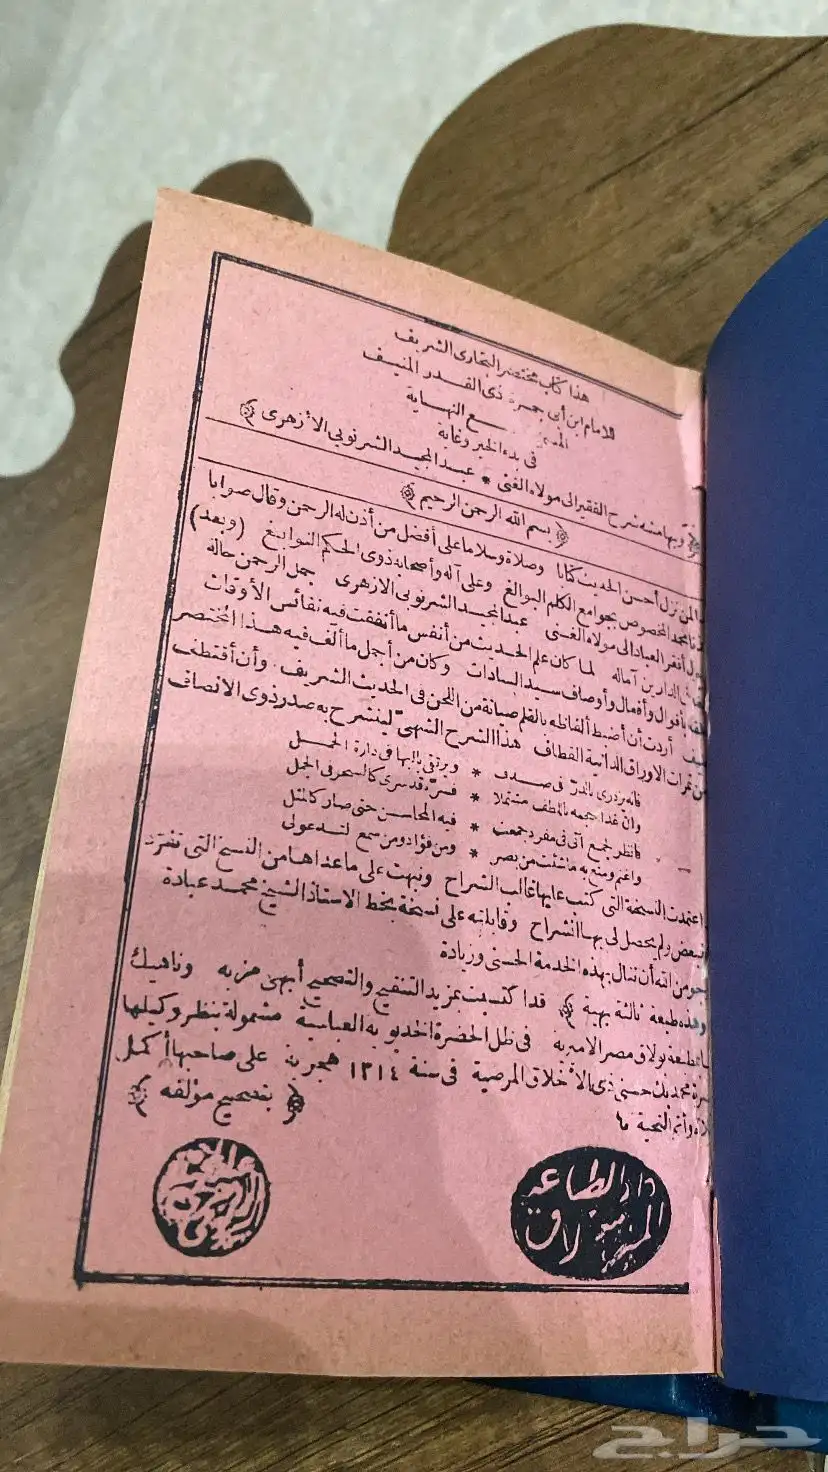 هذا كتاب مختصر البخارى الشريف
للامام ابن أبى جمرة ذى القدر المنيف
النهاية
فى بدء الخير وغاية
وبهامشه شرح الفقير الى مولاه الغنى * عبد المجيد الشرنوبى الازهرى
بسم الله الرحمن الرحيم
لمن نزل أحسن الحديث كتابا وصلاة وسلاما على أفضل من أذن له الرحمن وقال صوابا
المخصوص بجوامع الكلم البوالغ وعلى آله وأصحابه ذوى الحكم النوابغ (وبعد)
أفقر العباد الى مولاه الغنى عبد المجيد الشرنوبى الازهرى جمل الرحمن حاله
الدارين آماله لما كان علم الحديث من أنفس ما أنفقت فيه نفائس الأوقات
بأقوال وأفعال وأوصاف سيد السادات وكان من أجمل ما ألف فيه هذا المختصر
أردت أن أضبط ألفاظه بالقلم صيانة من اللحن فى الحديث الشريف وأن أقتطف
من ثمرات الاوراق الدانية القطاف هذا الشرح الشهىّ لينشرح به صدر ذوى الانصاف
فانه يزدرى بالدرّ فى صدف * ويرتقى بالبها فى دارة الحمل
وان غدا حجمه باللطف مشتملا * فسرّه قد سرى كالسحر فى الجمل
فانظر لجمع أتى فى مفرد جمعت * فيه المحاسن حتى صار كالمثل
واغنم ومتع به ما شئت من بصر * ومن فؤاد ومن سمع لتسد عولى
اعتمدت النسخة التى كتب عليها غالب الشراح ونبهت على ما عداها من النسخ التى تنفرد
ولم يحصل لى بها انشراح وقابلته على نسخة بخط الاستاذ الشيخ محمد عبادة
من الله أن تنال بهذه الخدمة الحسنى وزيادة
وهذه طبعة ثالثة بهية قد اكتسبت بمزيد التنقيح والتصحيح أبهى مزيه وناهيك
بولاق مصر الاميرية فى ظل الحضرة الخديوية العباسية مشمولة بنظر وكيلها
محمد بك حسنى ذى الأخلاق المرضية فى سنة ١٣١٤ هجرية على صاحبها أكمل
وأتم التحية
بتصحيح مؤلفه
دار الطباعة
بولاق